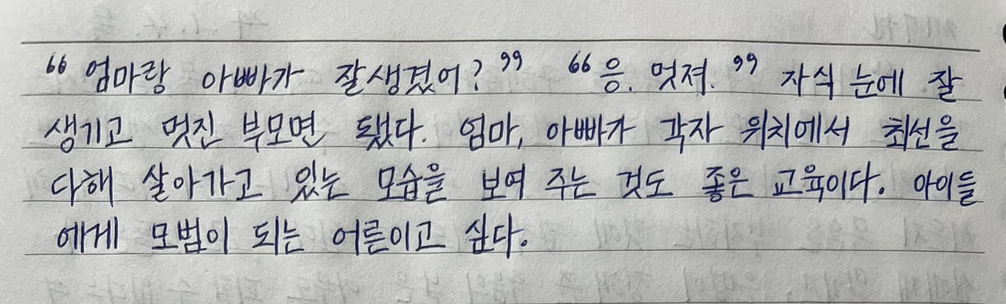 "엄마랑 아빠가 잘생겼어?" "응. 멋져." 자식 눈에 잘
생기고 멋진 부모면 됐다. 엄마, 아빠가 각자 위치에서 최선을
다해 살아가고 있는 모습을 보여 주는 것도 좋은 교육이다. 아이들
에게 모범이 되는 어른이고 싶다.